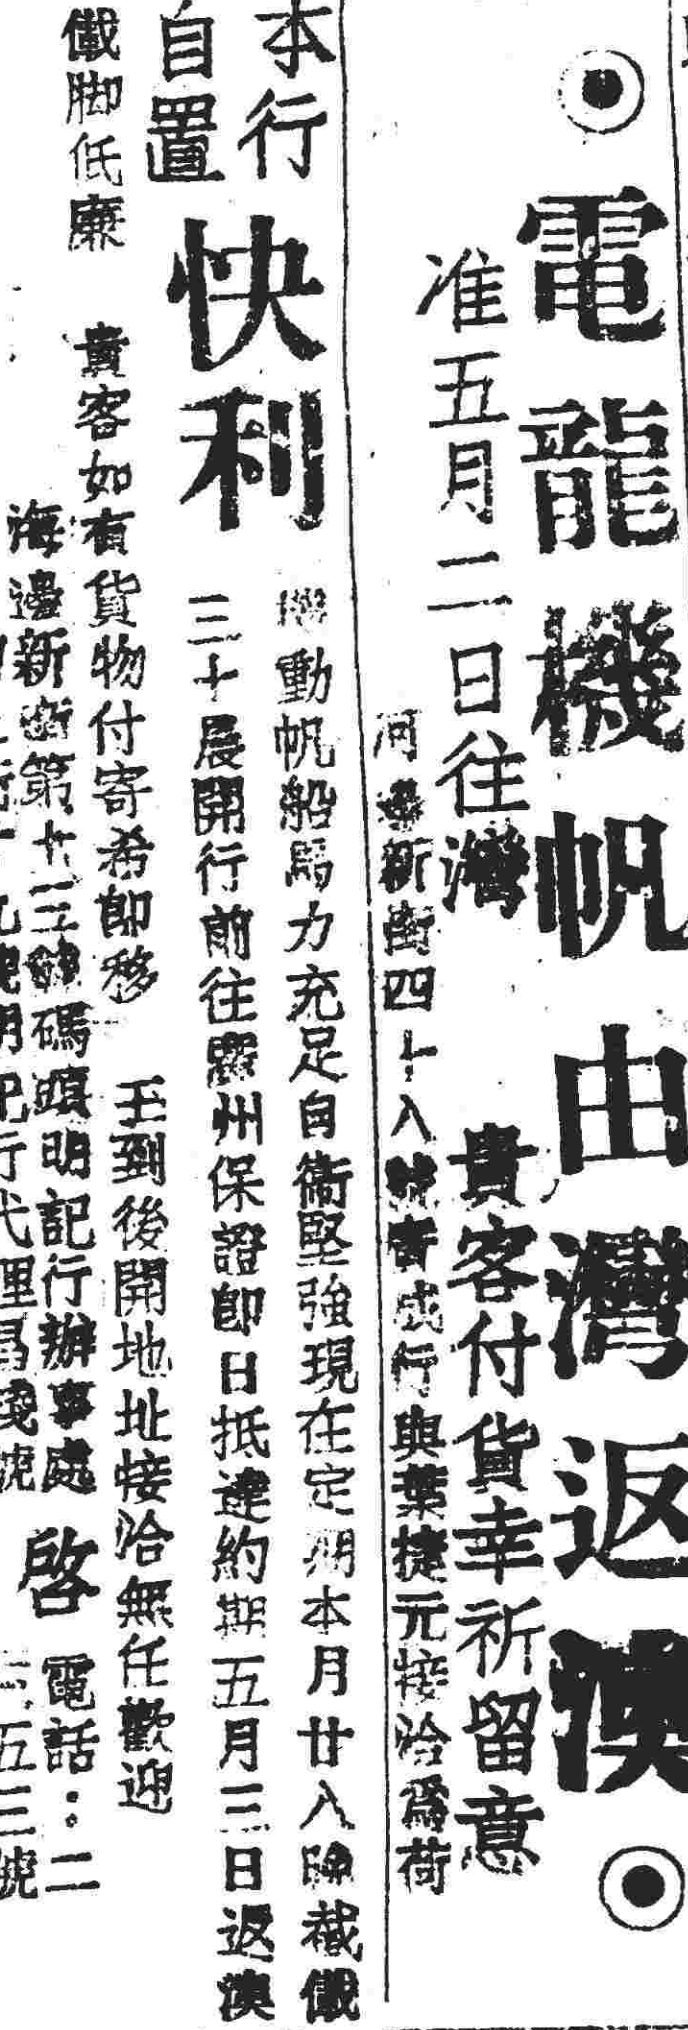 ◉電龍機帆由灣返澳◉
准五月二日往灣
貴客付貨幸祈留意
河邊新街四十八號音成行與葉捷元接洽為荷
本行
自置
快利
動帆船馬力充足自衛堅強現在定期本月廿八晚截儎
三十晨開行前往露州保證即日抵達約期五月三日返澳
儎脚低廉
貴客如有貨物付寄希即移
玉到後開地址接洽無任歡迎
海邊新街第十三號碼頭明記行辦事處
啓
電話：二
五三號